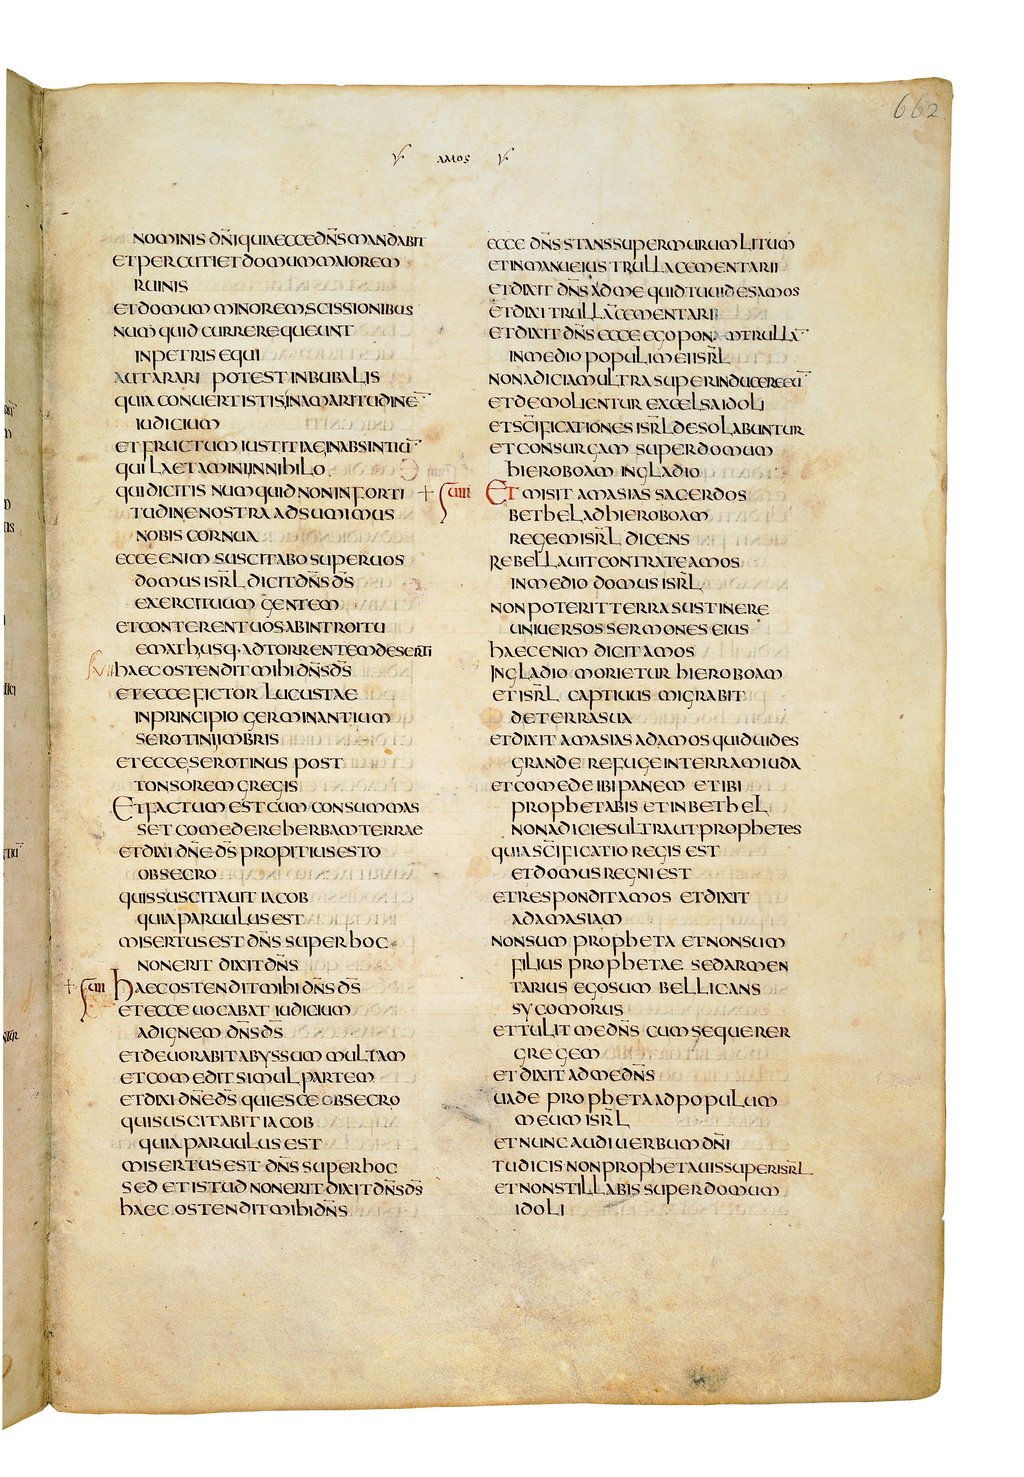 662
AMOS
NOMINIS DN̄I QUIA ECCE DN̄S MANDABIT
ET PERCUTIET DOMUM MAIOREM
RUINIS
ET DOMUM MINOREM SCISSIONIBUS
NUMQUID CURRERE QUEUNT
IN PETRIS EQUI
AUT ARARI POTEST IN BUBALIS
QUIA CONUERTISTIS IN AMARITUDINĒ
IUDICIUM
ET FRUCTUM IUSTITIAE IN ABSINTIŪ
QUI LAETAMINI IN NIHILO
QUI DICITIS NUMQUID NON IN FORTI
TUDINE NOSTRA ADSUMIMUS
NOBIS CORNUA
ECCE ENIM SUSCITABO SUPER UOS
DOMUS ISRL̄ DICIT DN̄S DS̄
EXERCITUUM GENTEM
ET CONTERENT UOS AB INTROITU
EMATH USQ· AD TORRENTEM DESERTI
HAEC OSTENDIT MIHI DN̄S DS̄
ET ECCE FICTOR LUCUSTAE
IN PRINCIPIO GERMINANTIUM
SEROTINI IMBRIS
ET ECCE SEROTINUS POST
TONSOREM GREGIS
ET FACTUM EST CUM CONSUMMAS
SET COMEDERE HERBAM TERRAE
ET DIXI DN̄E DS̄ PROPITIUS ESTO
OBSECRO
QUIS SUSCITAUIT IACOB
QUIA PARUULUS EST
MISERTUS EST DN̄S SUPER HOC
NON ERIT DIXIT DN̄S
HAEC OSTENDIT MIHI DN̄S DS̄
ET ECCE UOCABAT IUDICIUM
AD IGNEM DN̄S DS̄
ET DEUORABIT ABYSSUM MULTAM
ET COMEDIT SIMUL PARTEM
ET DIXI DN̄E DS̄ QUIESCE OBSECRO
QUI SUSCITABIT IACOB
QUIA PARUULUS EST
MISERTUS EST DN̄S SUPER HOC
SED ET ISTUD NON ERIT DIXIT DN̄S DS̄
HAEC OSTENDIT MIHI DN̄S
ECCE DN̄S STANS SUPER MURUM LITUM
ET IN MANU EIUS TRULLA CEMENTARII
ET DIXIT DN̄S AD ME QUID TU UIDES AMOS
ET DIXI TRULLĀ CEMENTARII
ET DIXIT DN̄S ECCE EGO PONAM TRULLĀ
IN MEDIO POPULI MEI ISRL̄
NON ADICIAM ULTRA SUPERINDUCERE EŪ
ET DEMOLIENTUR EXCELSA IDOLI
ET SC̄IFICATIONES ISRL̄ DESOLABUNTUR
ET CONSURGAM SUPER DOMUM
HIEROBOAM IN GLADIO
ET MISIT AMASIAS SACERDOS
BETHEL AD HIEROBOAM
REGEM ISRL̄ DICENS
REBELLAUIT CONTRA TE AMOS
IN MEDIO DOMUS ISRL̄
NON POTERIT TERRA SUSTINERE
UNIUERSOS SERMONES EIUS
HAEC ENIM DICIT AMOS
IN GLADIO MORIETUR HIEROBOAM
ET ISRL̄ CAPTIUUS MIGRABIT
DE TERRA SUA
ET DIXIT AMASIAS AD AMOS QUI UIDES
GRANDE REFUGE IN TERRAM IUDA
ET COMEDE IBI PANEM ET IBI
PROPHETABIS ET IN BETHEL
NON ADICIES ULTRA UT PROPHETES
QUIA SC̄IFICATIO REGIS EST
ET DOMUS REGNI EST
ET RESPONDIT AMOS ET DIXIT
AD AMASIAM
NON SUM PROPHETA ET NON SUM
FILIUS PROPHETAE SED ARMEN
TARIUS EGO SUM BELLICANS
SYCOMORUS
ET TULIT ME DN̄S CUM SEQUERER
GREGEM
ET DIXIT AD ME DN̄S
UADE PROPHETA AD POPULUM
MEUM ISRL̄
ET NUNC AUDI UERBUM DN̄I
TU DICIS NON PROPHETAUIS SUPER ISRL̄
ET NON STILLABIS SUPER DOMUM
IDOLI